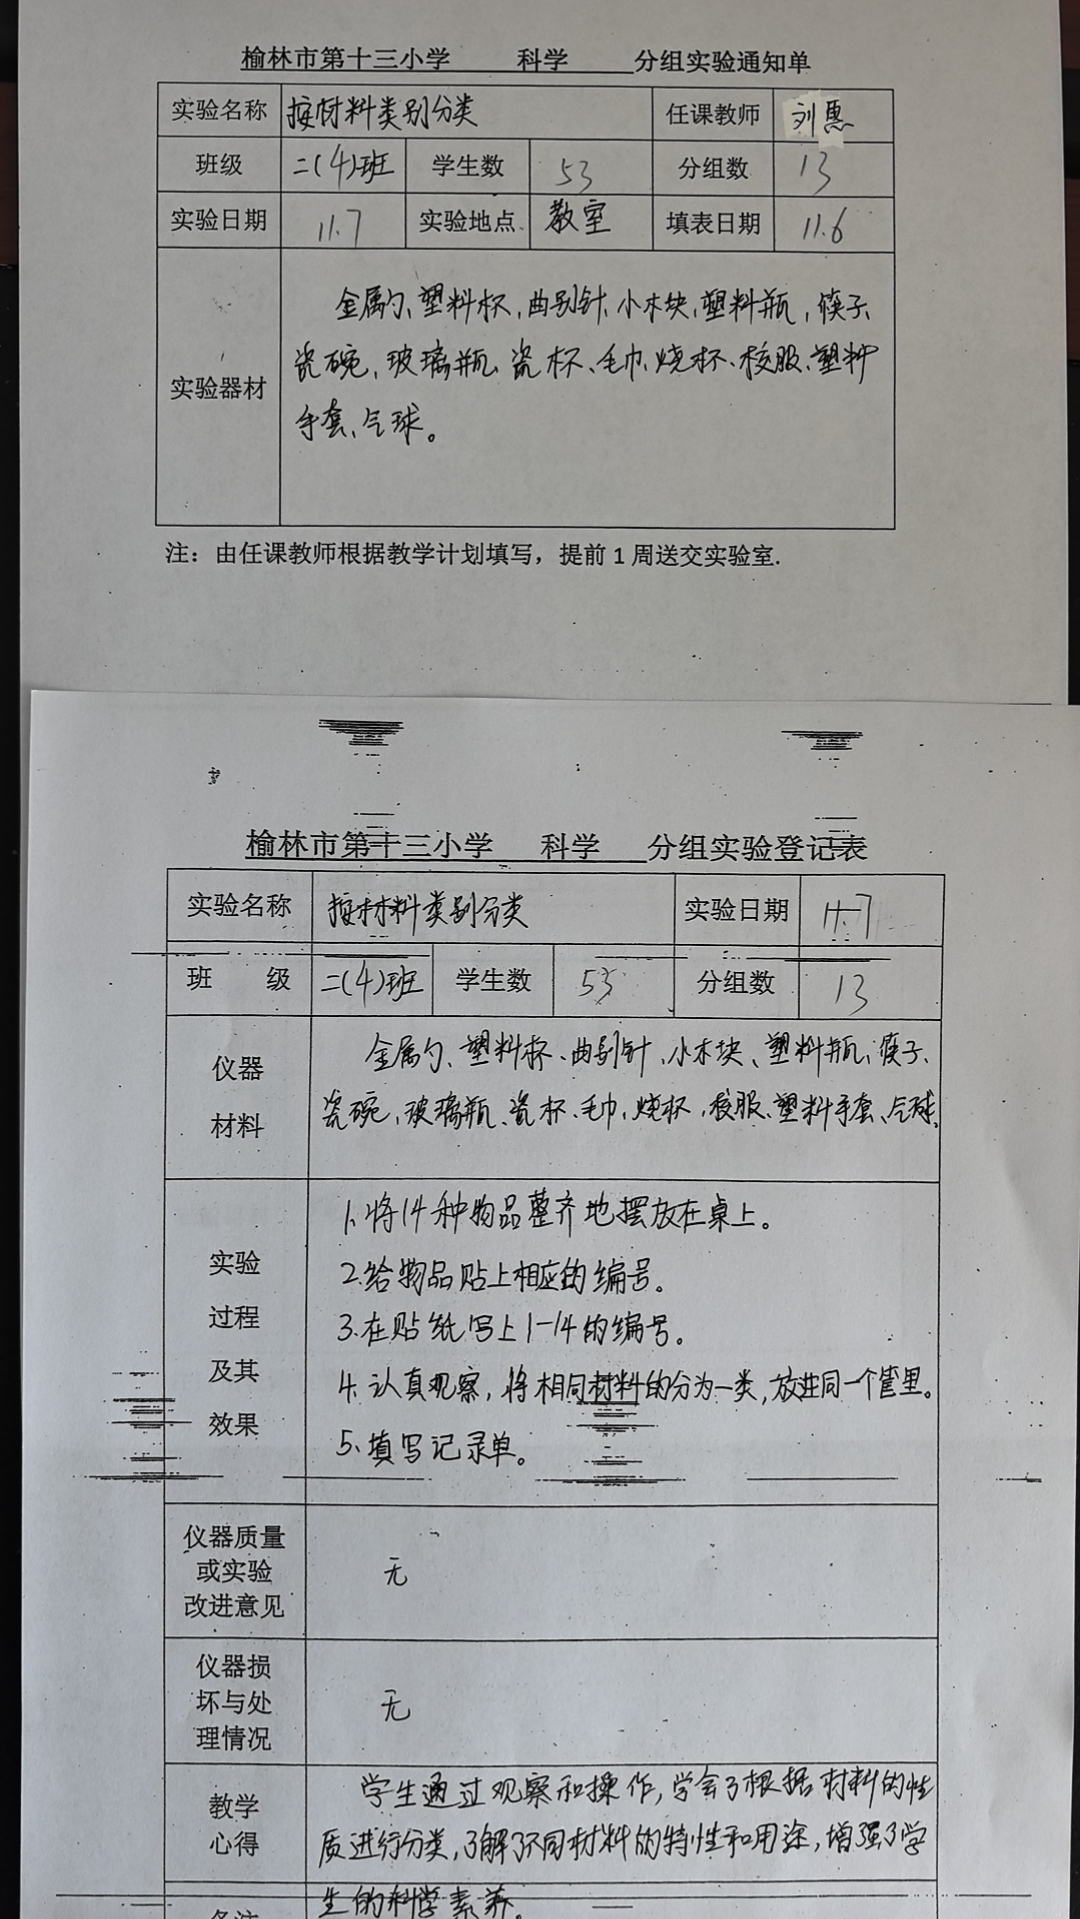 榆林市第十三小学 科学 分组实验通知单
实验名称 按材料类别分类 任课教师 刘惠
班级 二(4)班 学生数 53 分组数 13
实验日期 11.7 实验地点 教室 填表日期 11.6
金属勺、塑料杯、曲别针、小木块、塑料瓶、筷子、
瓷碗、玻璃瓶、瓷杯、毛巾、烧杯、校服、塑料
实验器材
手套、气球。
注：由任课教师根据教学计划填写，提前1周送交实验室.
榆林市第十三小学 科学 分组实验登记表
实验名称 按材料类别分类 实验日期 11.7
班 级 二(4)班 学生数 53 分组数 13
仪器
材料
金属勺、塑料杯、曲别针、小木块、塑料瓶、筷子、
瓷碗、玻璃瓶、瓷杯、毛巾、烧杯、校服、塑料手套、气球。
实验
过程
及其
效果
1、将14种物品整齐地摆放在桌上。
2.给物品贴上相应的编号。
3.在贴纸写上1-14的编号。
4.认真观察，将相同材料的分为一类，放进同一个筐里。
5、填写记录单。
仪器质量
或实验
改进意见
无
仪器损
坏与处
理情况
无
教学
心得
学生通过观察和操作，学会了根据材料的性
质进行分类，了解了不同材料的特性和用途，增强了学
生的科学素养。
备注